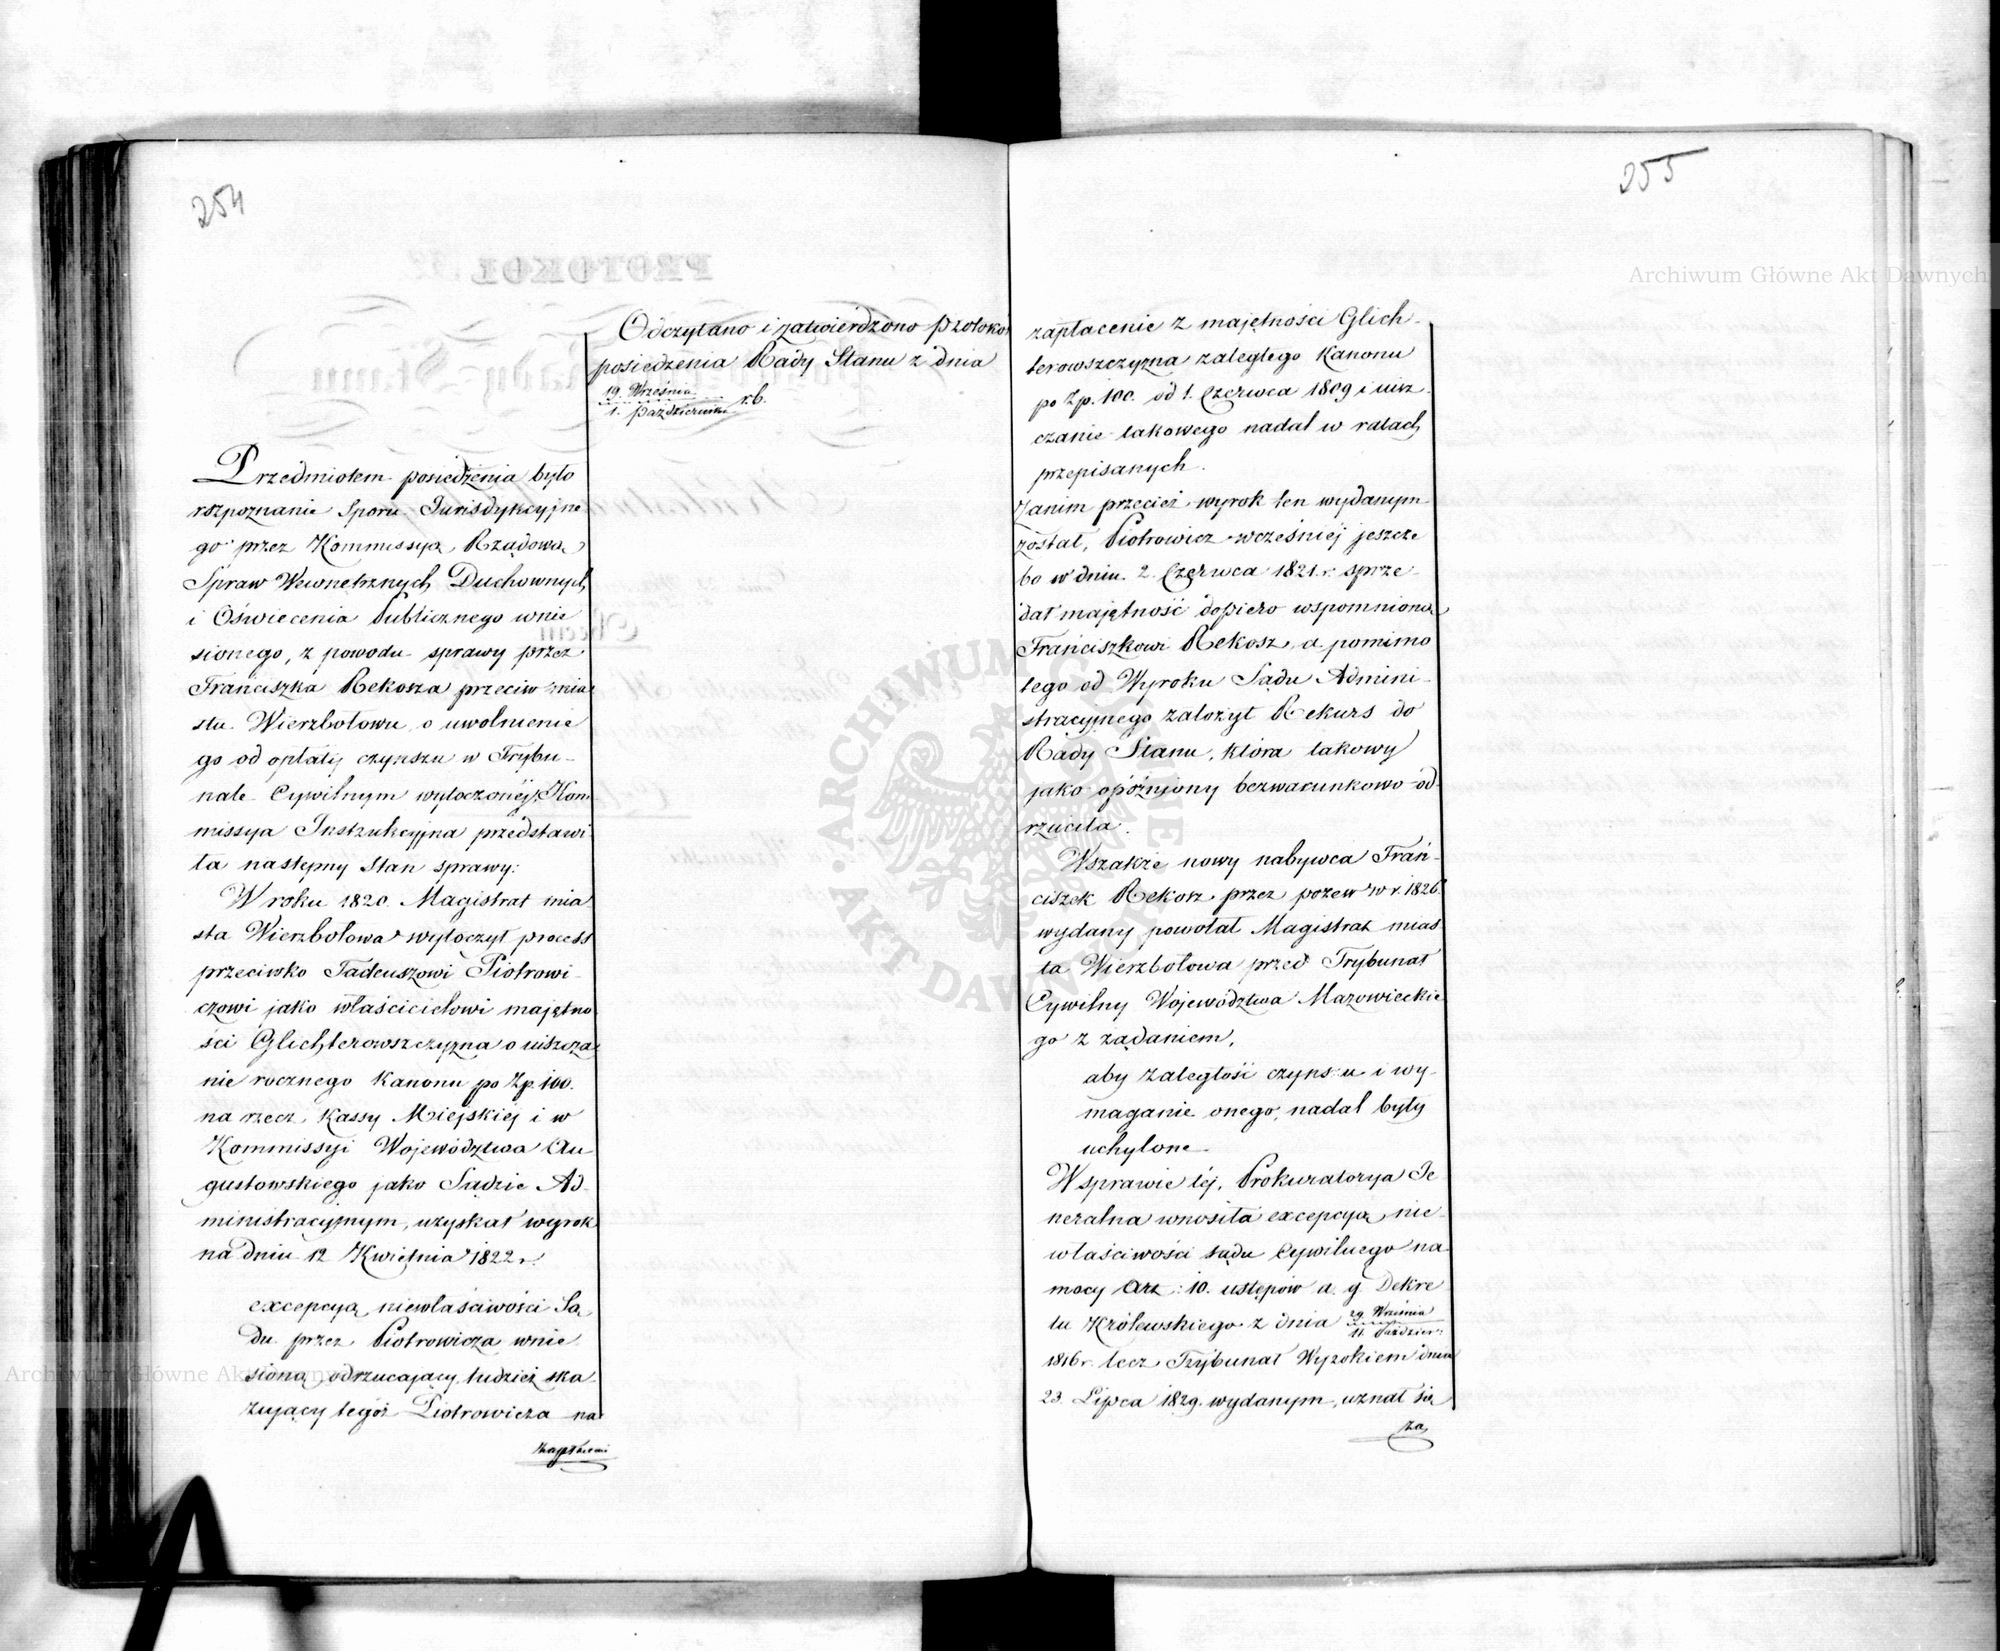 254
Odczytano i zatwierdzono Protokoł
posiedzenia Rady Stanu z dnia
19. Września
1. Październik r.b.
Przedmiotem posiedzenia było
rozpoznanie Sporu Jurisdykcyjne
go przez Kommissyą Rządową
Spraw Wewnętrznych Duchownych
i Oświecenia Publicznego wnie
sionego, z powodu sprawy przez
Franciszka Rekosza przeciw mia
stu Wierzbołowu o uwolnienie
go od opłaty czynszu w Trybu-
nale Cywilnym wytoczonéj, Kom
missya Instrukcyjna przedstawi
ła następny Stan sprawy:
W roku 1820. Magistrat mia
sta Wierzbołowa wytoczył process
przeciwko Tadeuszowi Piotrowi-
czowi jako właścicielowi majętno
ści Glichterowszczyzna o uiszcza
nie rocznego Kanonu po Zp. 100.
na rzecz Kassy Miejskiéj i w
Kommissyi Województwa Au
gustowskiego jako Sądzie Ad-
ministracyjnym, uzyskał wyrok
na dniu 12 Kwietnia 1822 r.
excepcyą niewłaściwości Są
du przez Piotrowicza wnie
sioną odrzucający, tudzież ska-
zujący tegoż Piotrowicza na
zapłacenie
255
zapłacenie z majętności Glich-
terowszczyzna zaległego Kanonu
po Zp. 100. od 1. Czerwca 1809 i uisz
czanie takowego nadal w ratach
przepisanych.
Zanim przecież wyrok ten wydanym
został, Piotrowicz wcześniéj jeszcze
bo w dniu 2. Czerwca 1821. r. sprze-
dał majętność dopiero wspomnioną
Franciszkowi Rekosz, a pomimo
tego od Wyroku Sądu Admini-
stracyjnego założył Rekurs do
Rady Stanu, która takowy
jako opóźniony bezwarunkowo od
rzuciła.
Wszakże nowy nabywca Fran-
ciszek Rekosz przez pozew w r. 1826.
wydany powołał Magistrat mias
ta Wierzbołowa przed Trybunał
Cywilny Województwa Mazowieckie
go z żądaniem,
aby zaległości czynszu i wy-
maganie onego, nadal były
uchylone
W sprawie téj, Prokuratorya Je
neralna wnosiła excepcyą nie-
właściwości sądu Cywilnego na
mocy Art: 10. ustępów a. g. Dekre
tu Królewskiego z dnia 29 Września
11. Paździer:
1816 r. lecz Trybunał Wyrokiem dnia
23 Lipca 1829. wydanym, uznał się
za
Archiwum Główne Akt Dawnych
Archiwum Główne Akt Dawnych
· ARCHIWUM GŁÓWNE · AKT DAWNYCH
PROTOKOŁ